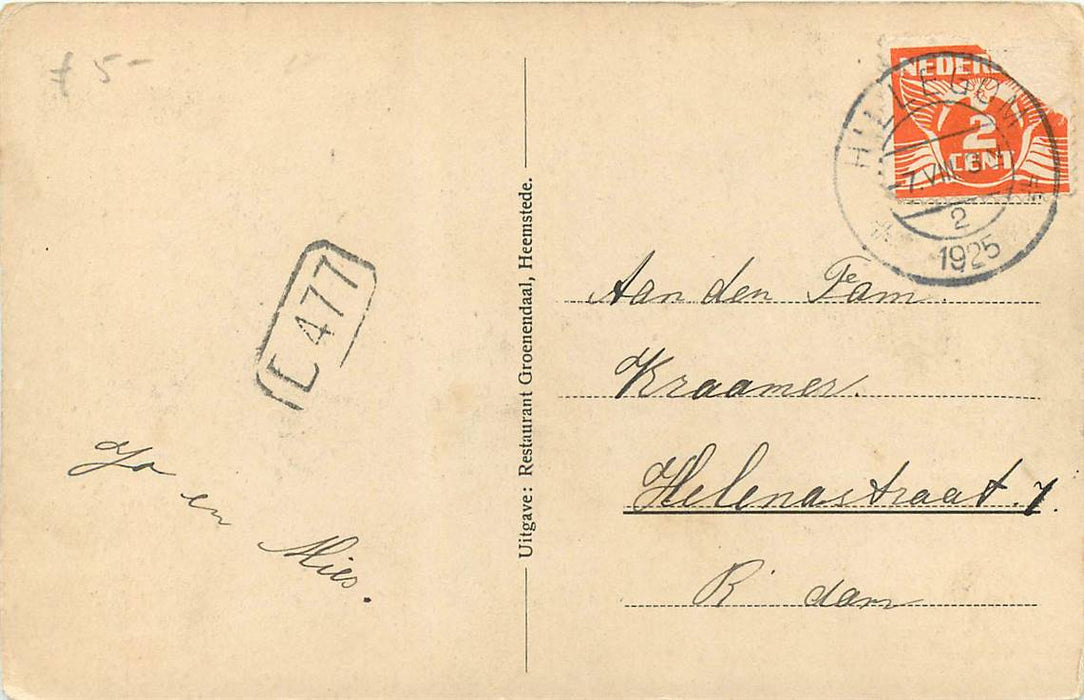 f 5-
NEDER
2
CENT
HILLEGOM
7.VIII
2
1925
E 477
Jo en Mies.
Uitgave: Restaurant Groenendaal, Heemstede.
Aan den Fam.
Kraamer.
Helenastraat. 7.
R'dam